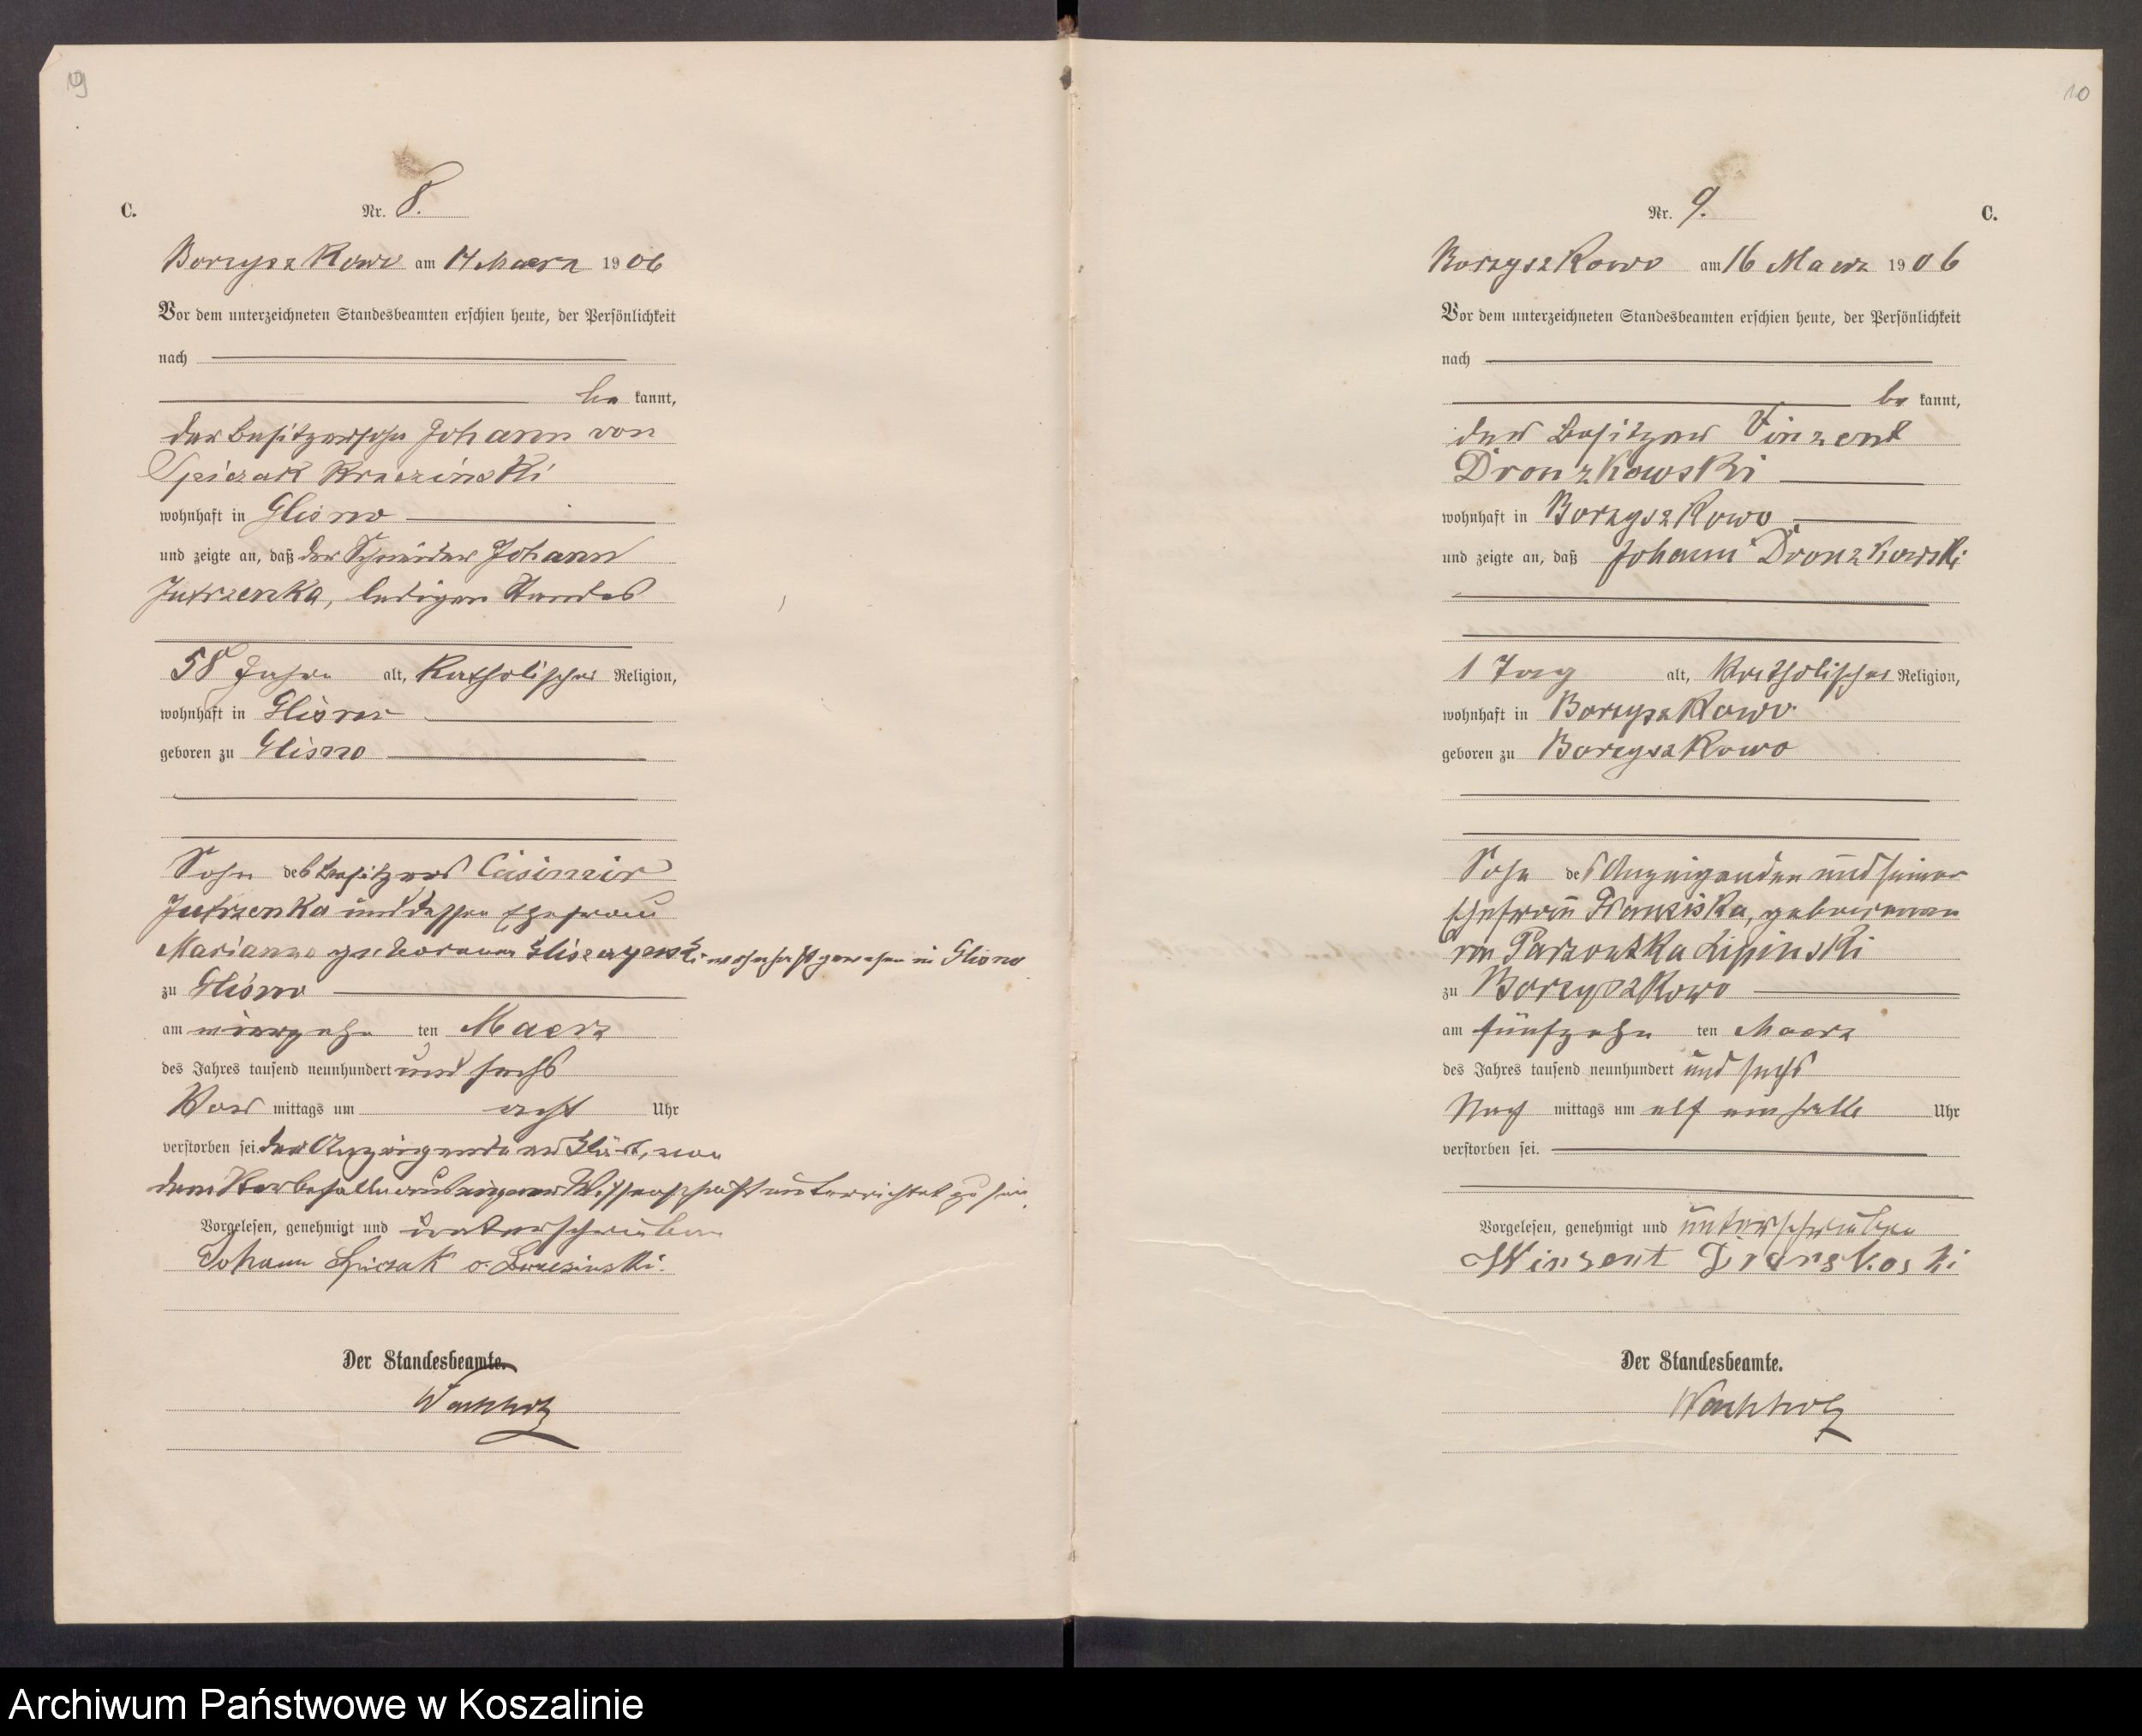 19
C.
Nr. 8.
Borzyszkowo am 14 Maerz 1906
Vor dem unterzeichneten Standesbeamten erschien heute, der Persönlichkeit
nach
be kannt,
der Besitzersohn Johann von
Spiczak Brzezinski
wohnhaft in Glisno
und zeigte an, daß der Schneider Johann
Jutrzenka, ledigen Standes
58 Jahre alt, Katholischer Religion,
wohnhaft in Glisno
geboren zu Glisno
Sohn des Besitzers Casimir
Jutrzenka und dessen Ehefrau
Marianna geborenen wohnhaft gewesen in Glisno
zu Glisno
am vierzehn ten Maerz
des Jahres tausend neunhundert und sechs
Vor mittags um acht Uhr
verstorben sei. der Anzeigende erklärt, von
dem Sterbefalle aus eigener Wissenschaft unterrichtet zu sein.
Vorgelesen, genehmigt und unterschrieben
Johann Spiczak v. Brzezinski.
Der Standesbeamte.
Wachholz
10
Nr. 9.
C.
Borzyszkowo am 16 Maerz 1906
Vor dem unterzeichneten Standesbeamten erschien heute, der Persönlichkeit
nach
be kannt,
der Besitzer Vinzent
Dronzkowski
wohnhaft in Borzyszkowo
und zeigte an, daß Johann Dronzkowski
1 Tag alt, Katholischer Religion,
wohnhaft in Borzyszkowo
geboren zu Borzyszkowo
Sohn des Anzeigenden und seiner
Ehefrau Franziska, geborenen
von Parzontka Lipinski
zu Borzyszkowo
am fünfzehn ten Maerz
des Jahres tausend neunhundert und sechs
Nach mittags um elf ein halb Uhr
verstorben sei.
Vorgelesen, genehmigt und unterschrieben
Winzent Dronskoski
Der Standesbeamte.
Wachholz
Archiwum Państwowe w Koszalinie